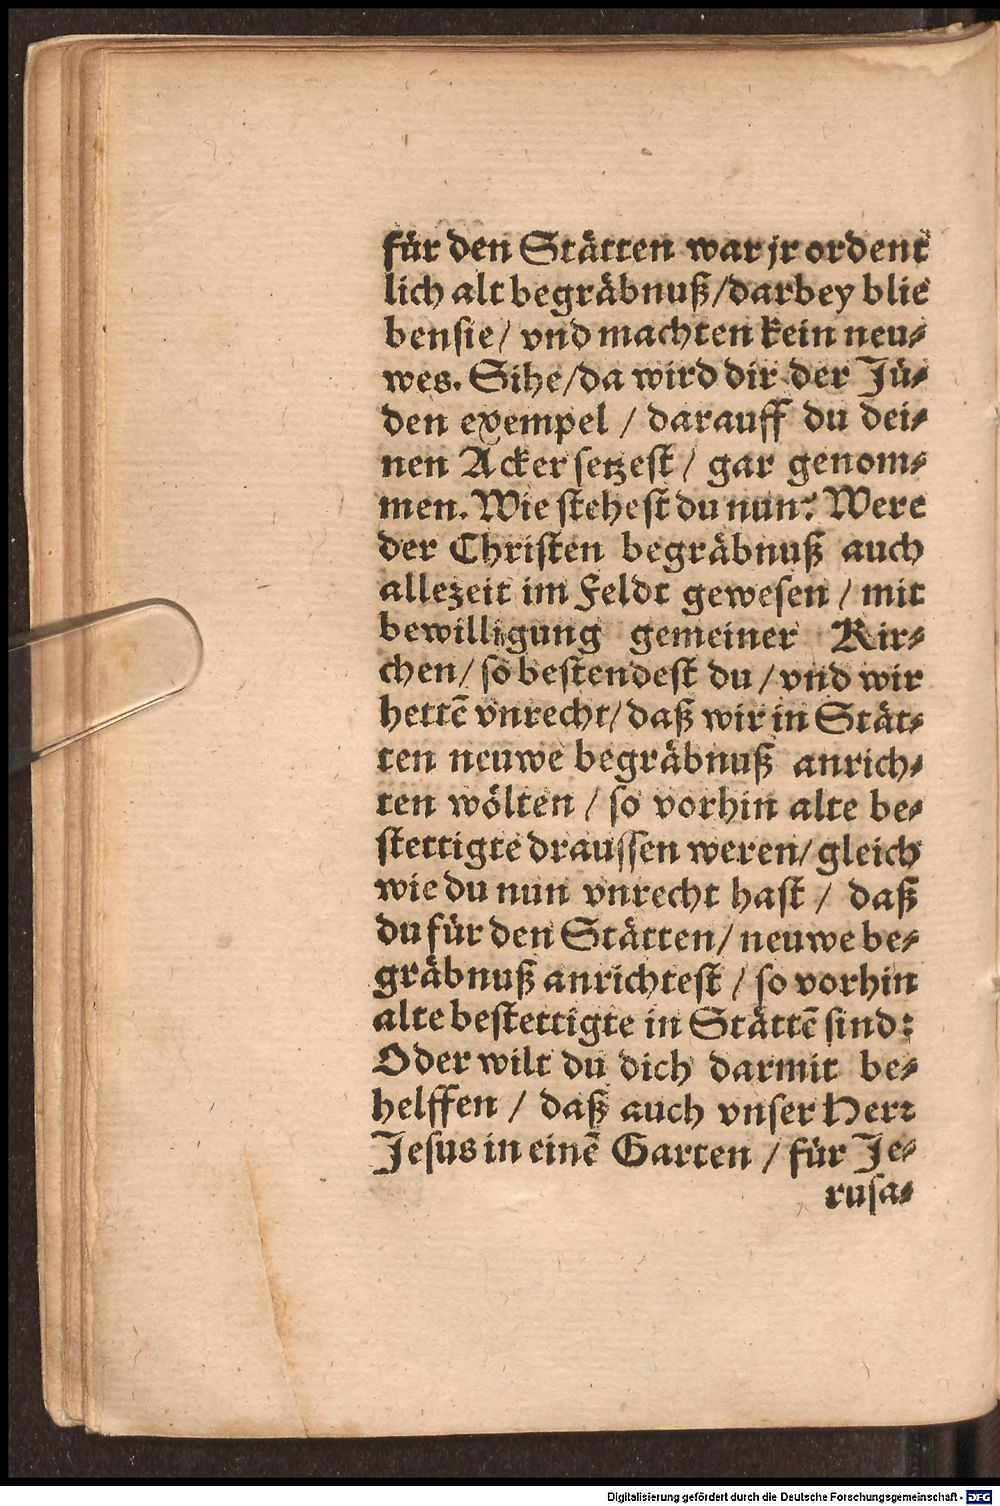 für den Stätten war jr ordent
lich alt begräbnuß/darbey blie
bensie/ vnd machten kein neu-
wes. Sihe/da wird dir der Jü-
den exempel / darauff du dei-
nen Acker setzest/ gar genom-
men. Wie stehest du nun? Were
der Christen begräbnuß auch
allezeit im Feldt gewesen / mit
bewilligung gemeiner Kir-
chen/ so bestendest du/ vnd wir
hettē vnrecht/ daß wir in Stät-
ten neuwe begräbnuß anrich-
ten wölten / so vorhin alte be-
stettigte draussen weren/ gleich
wie du nun vnrecht hast / daß
du für den Stätten/ neuwe be-
gräbnuß anrichtest / so vorhin
alte bestettigte in Stättē sind:
Oder wilt du dich darmit be-
helffen / daß auch vnser Herr
Jesus in einē Garten / für Je-
rusa-
Digitalisierung gefördert durch die Deutsche Forschungsgemeinschaft - DFG